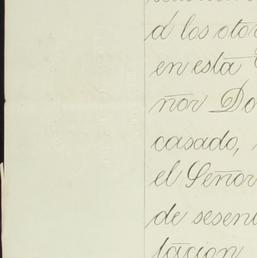 á los otor
en esta
ñor Do
casado,
el Señor
de sesen
tacion